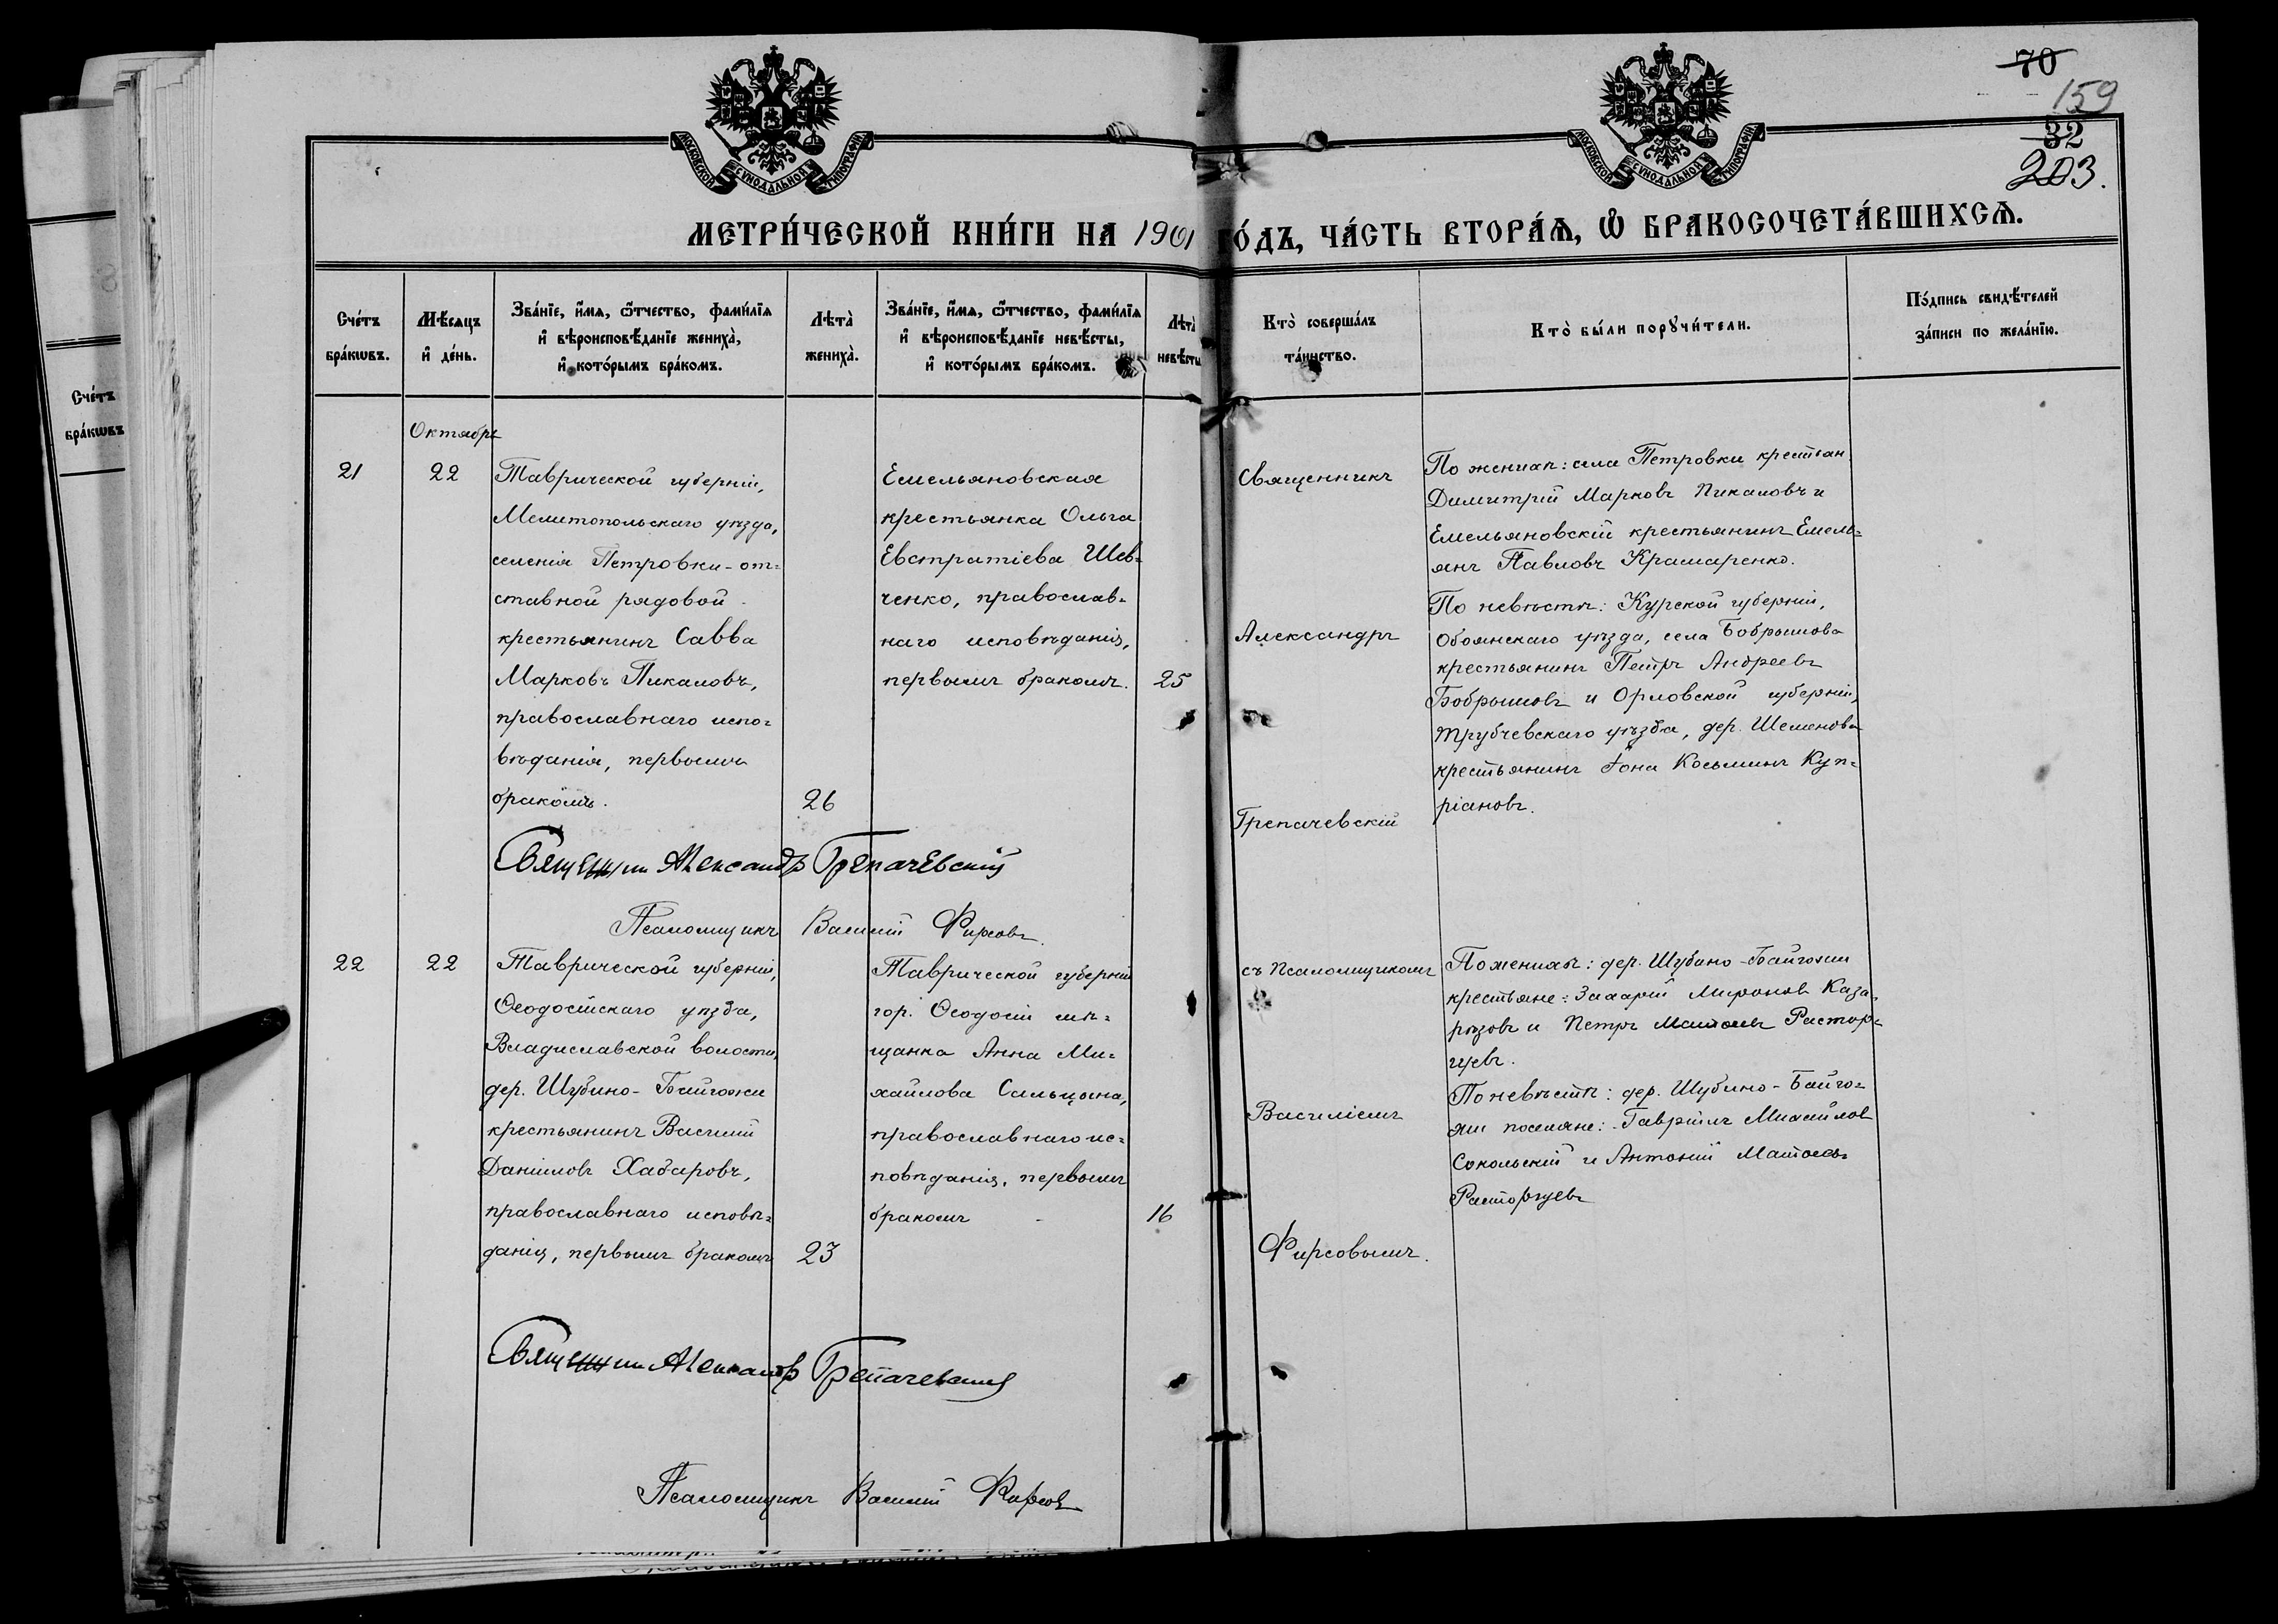 70
159
32
203.
МОСКОВСКОЙ СѴНОДАЛЬНОЙ ТИПОГРАФІИ
МОСКОВСКОЙ СѴНОДАЛЬНОЙ ТИПОГРАФІИ
МЕТРИ́ЧЕСКОЙ КНИ́ГИ НА 1901 ГО́ДЪ, ЧА́СТЬ ВТОРА́Ѧ, Ѽ БРАКОСОЧЕТА́ВШИХСѦ.
Сче́тъ
бра́кѡвъ.
Мѣ́сяцъ
и҆ де́нь.
Зва́нїе, и҆́мѧ, ѻ҆́тчество, фами́лїѧ
и҆ вѣроисповѣ́данїе жениха̀,
и҆ кото́рымъ бра́комъ.
Лѣта̀
жениха̀.
Зва́нїе, и҆́мѧ, ѻ҆́тчество, фами́лїѧ
и҆ вѣроисповѣ́данїе невѣ́сты,
и҆ кото́рымъ бра́комъ.
Лѣта̀
невѣ́сты
Кто̀ соверша́лъ
та́инство.
Кто̀ бы́ли порꙋчи́тели.
По́дпись свидѣ́телей
за́писи по жела́нїю.
Сче́тъ
бра́кѡвъ
Октябрь
21
22
Таврической губерніи,
Мелитопольскаго уѣзда,
селенія Петровки - от-
ставной рядовой
крестьянинъ Савва
Марковъ Пикаловъ,
православнаго испо-
вѣданія, первымъ
бракомъ.
26
Емельяновская
крестьянка Ольга
Евстратіева Шев-
ченко, православ-
наго исповѣданія,
первымъ бракомъ.
25
Священникъ
Александръ
Трепачевскій
По женихѣ: села Петровки крестьян.
Димитрій Марковъ Пикаловъ и
Емельяновскій крестьянинъ Емель-
янъ Павловъ Крамаренко.
По невѣстѣ: Курской губерніи,
Обоянскаго уѣзда, села Бобрышова
крестьянинъ Петръ Андреевъ
Бобрышовъ и Орловской губерніи,
Трубчевскаго уѣзда, дер.
крестьянинъ Іона Косьминъ Куп-
ріановъ.
Священник Александръ Трепачевскій
Псаломщикъ Василій Фирсовъ.
22
22
Таврической губерніи,
Ѳеодосійскаго уѣзда,
Владиславской волости,
дер. Шубино-Байгожи
крестьянинъ Василій
Даніиловъ Хабаровъ,
православнаго исповѣ-
данія, первымъ бракомъ
23
Таврической губерніи
гор. Ѳеодосіи мѣ-
щанка Анна Ми-
хайлова Сальцына,
православнаго ис-
повѣданія, первымъ
бракомъ
16
съ Псаломщикомъ
Василіемъ
Фирсовымъ.
По женихѣ: дер. Шубино-Байгожи
крестьяне: Захарій Мироновъ Каза-
рѣзовъ и Петръ Матѳеевъ Растор-
гуевъ.
По невѣстѣ: дер. Шубино-Байго-
жи поселяне: Гавріилъ Михайловъ
Сокольскій и Антоній Матѳеевъ
Расторгуевъ
Священник Александръ Трепачевскій
Псаломщикъ Василій Фирсовъ